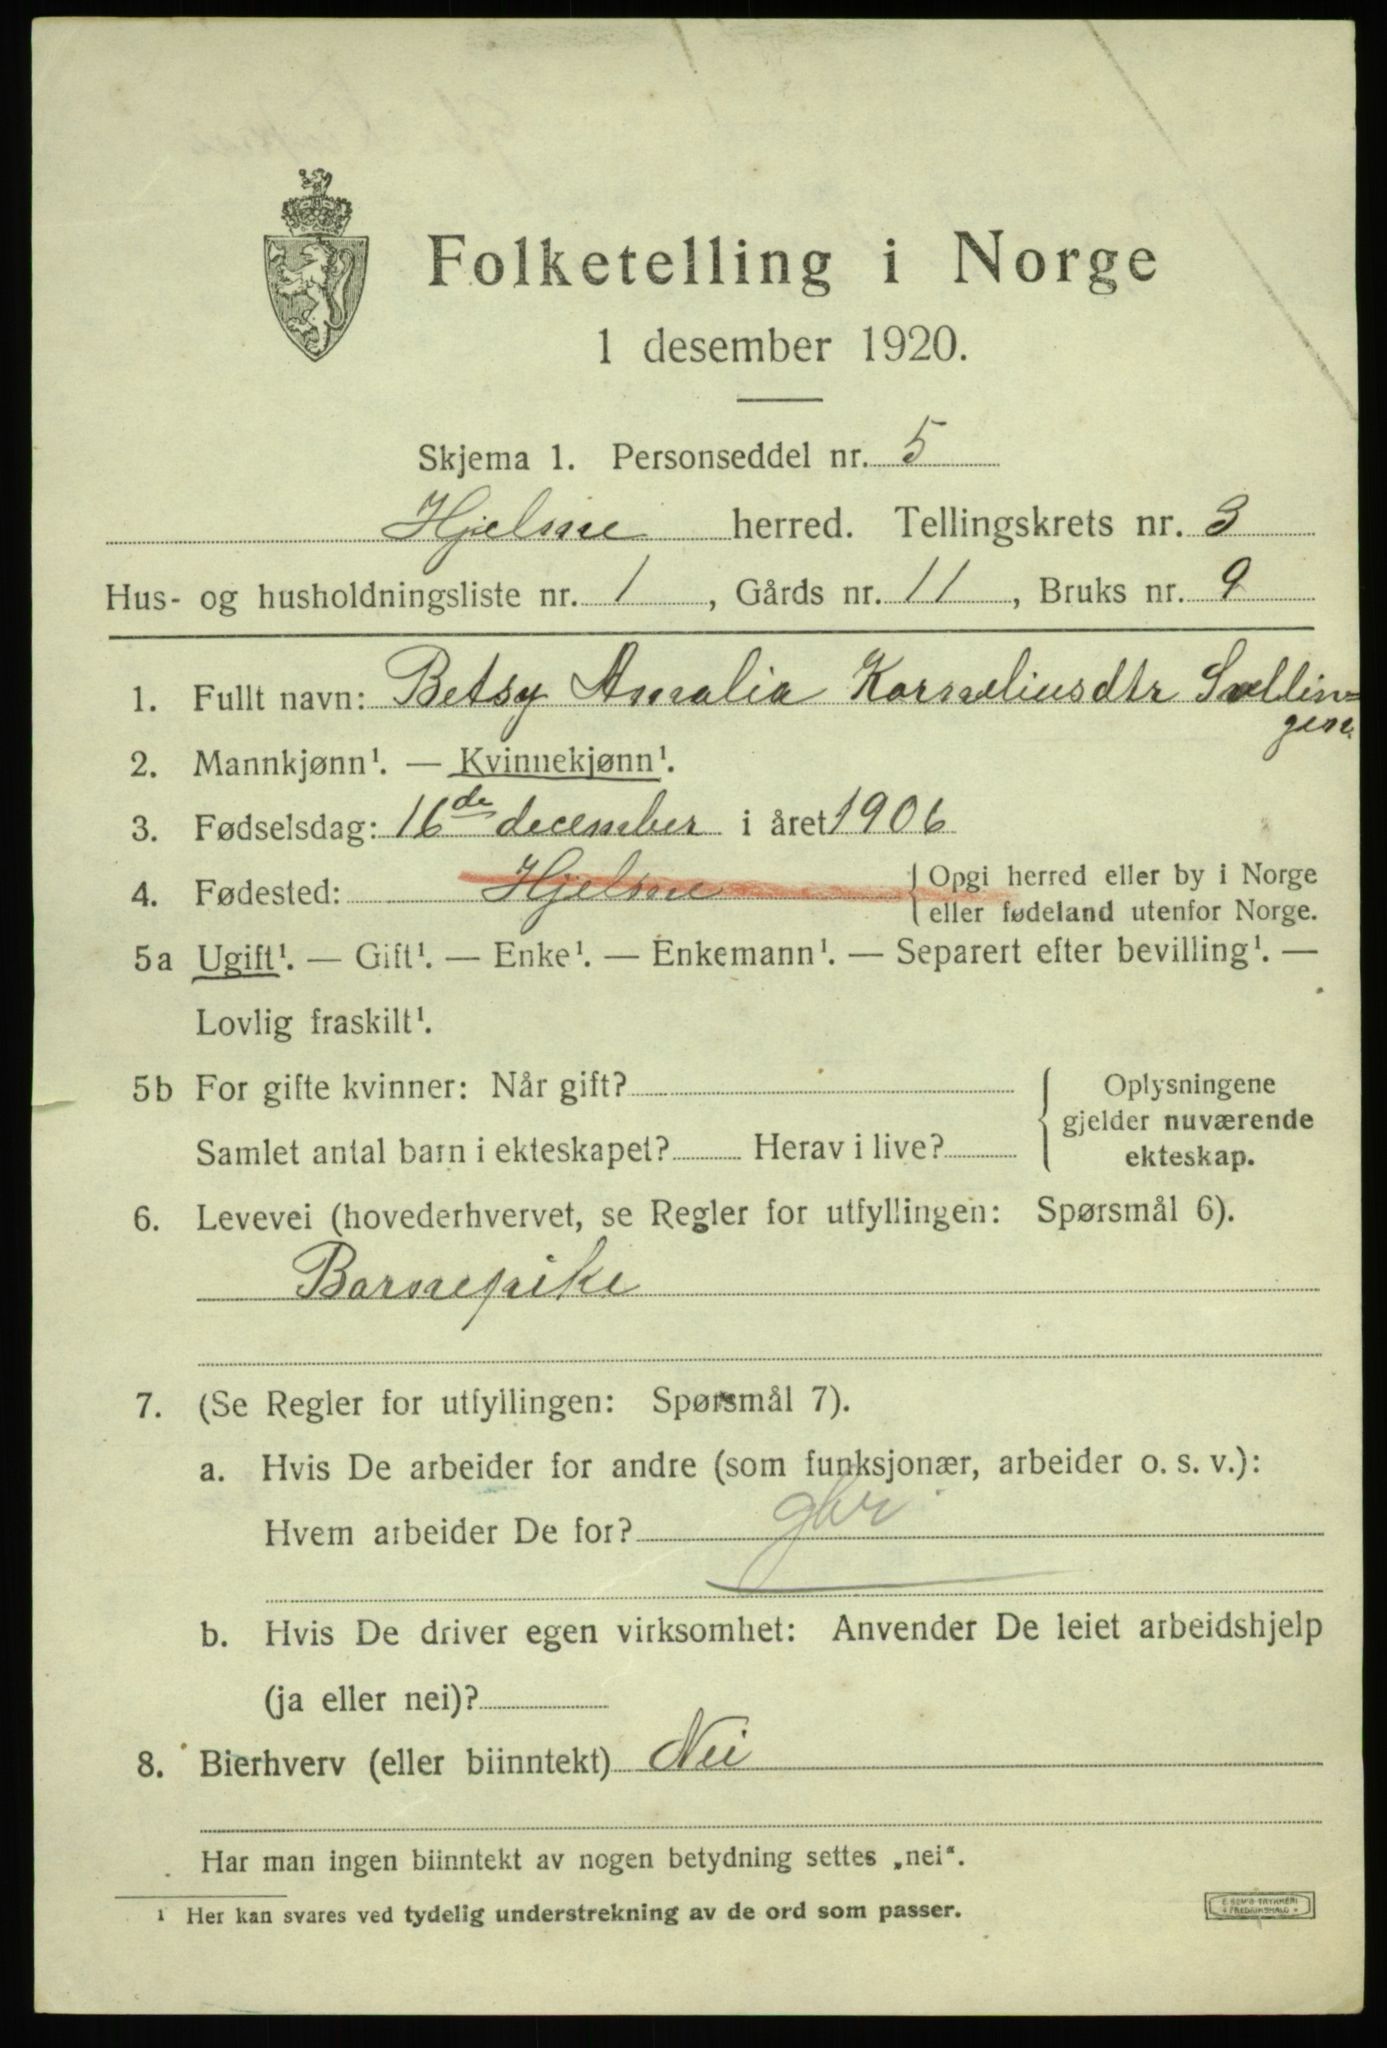 Folketelling i Norge
1 desember 1920.
Skjema 1. Personseddel nr. 5
Hjelme herred. Tellingskrets nr. 3
Hus- og husholdningsliste nr. 1, Gårds nr. 11, Bruks nr. 9
1. Fullt navn: Betsy Amalia Korneliusdtr Sællin=
gen.
2. Mannkjønn¹. — Kvinnekjønn¹.
3. Fødselsdag: 16de december i året 1906
4. Fødested: Hjelme { Opgi herred eller by i Norge
eller fødeland utenfor Norge.
5a Ugift¹. — Gift¹. — Enke¹. — Enkemann¹. — Separert efter bevilling¹. —
Lovlig fraskilt¹.
5b For gifte kvinner: Når gift? { Oplysningene
gjelder nuværende
Samlet antal barn i ekteskapet? Herav i live? ekteskap.
6. Levevei (hovederhvervet, se Regler for utfyllingen: Spørsmål 6).
Barnepike
7. (Se Regler for utfyllingen: Spørsmål 7).
a. Hvis De arbeider for andre (som funksjonær, arbeider o. s. v.):
Hvem arbeider De for? gbr
b. Hvis De driver egen virksomhet: Anvender De leiet arbeidshjelp
(ja eller nei)?
8. Bierhverv (eller biinntekt) Nei
Har man ingen biinntekt av nogen betydning settes „nei“.
¹ Her kan svares ved tydelig understrekning av de ord som passer.